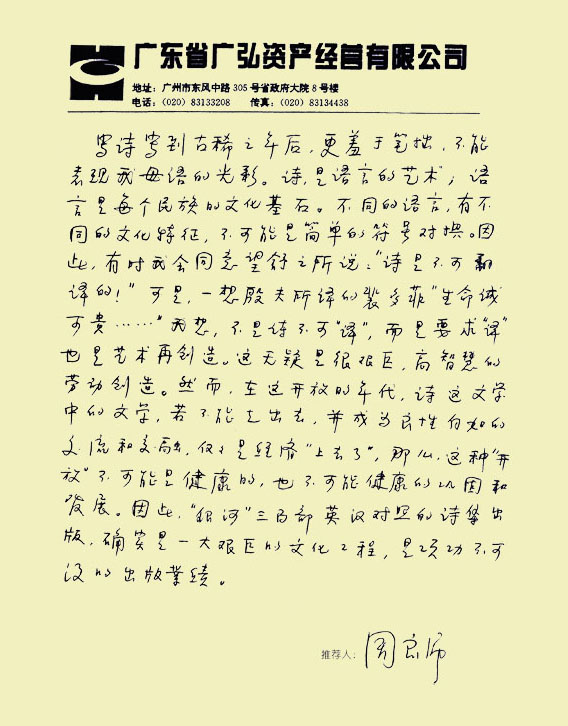 广东省广弘资产经营有限公司
地址：广州市东风中路 305 号省政府大院 8 号楼
电话：（020）83133208 传真：（020）83134438
写诗写到古稀之年后，更羞于笔拙，不能
表现我母语的光彩。诗，是语言的艺术；语
言是每个民族的文化基石。不同的语言，有不
同的文化特征，不可能是简单的符号对换。因
此，有时我会同意望舒之所说：“诗是不可翻
译的！”可是，一想殷夫所译的裴多菲“生命诚
可贵……”我想，不是诗不可“译”，而是要求“译”
也是艺术再创造。这无疑是很艰巨，高智慧的
劳动创造。然而，在这开放的年代，诗这文学
中的文学，若不能走出去，并成为良性互动的
交流和交融，仅仅是经济“上去了”，那么，这种“开
放”不可能是健康的，也不可能健康的巩固和
发展。因此，“银河”三局部英汉对照的诗集出
版，确实是一大艰巨的文化工程，是项功不可
没的出版业绩。
推荐人：